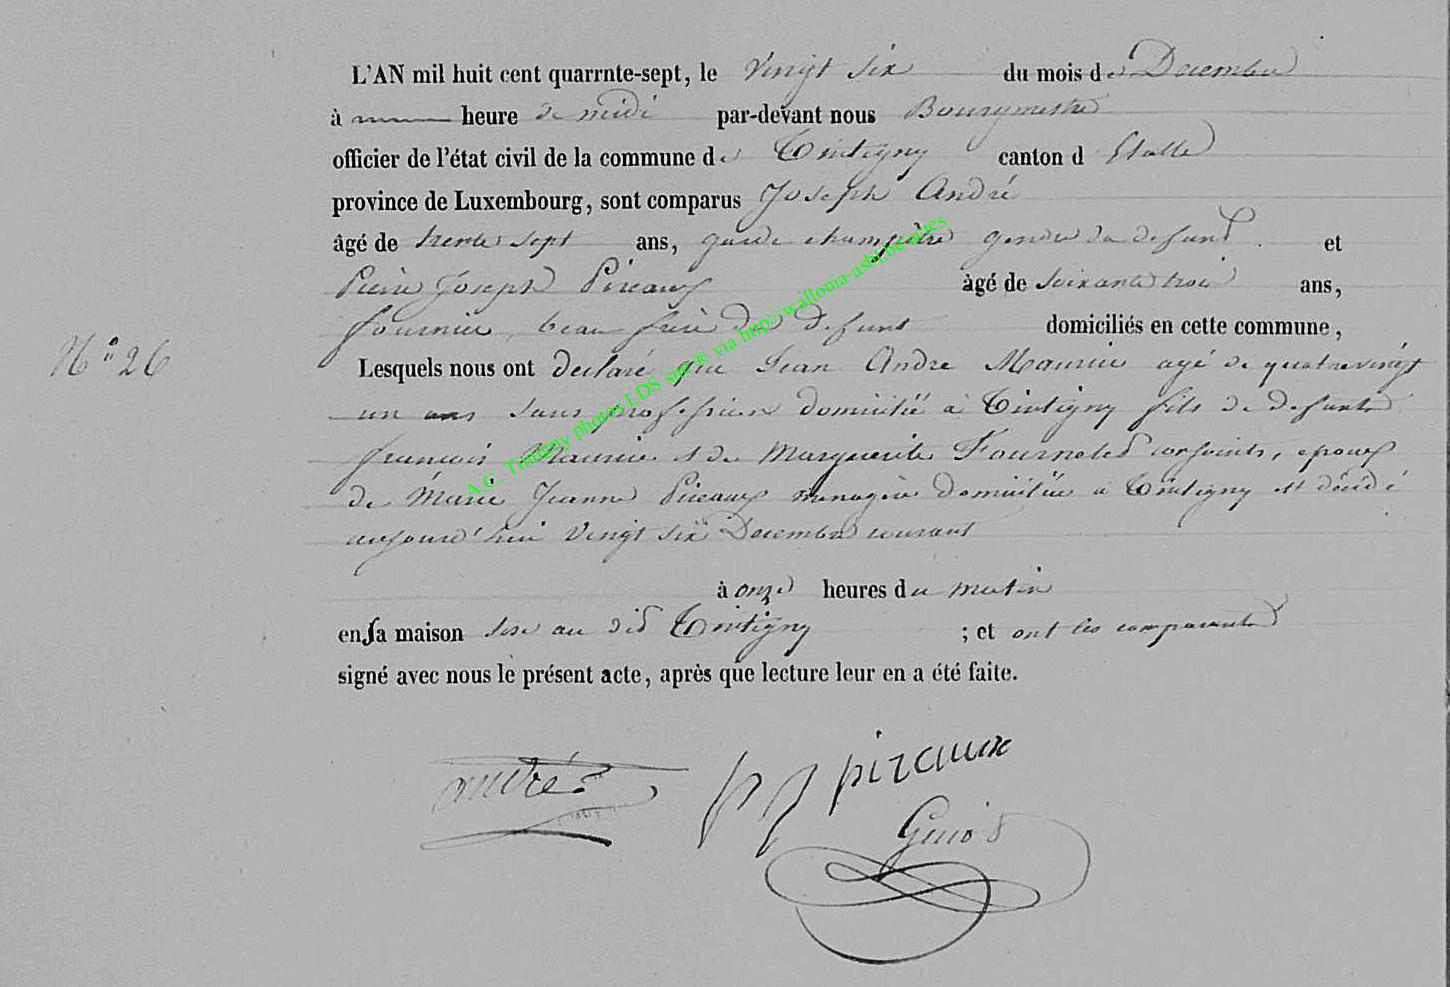 L'AN mil huit cent quarrnte-sept, le Vingt six du mois de Decembre
à heure de midi par-devant nous Bourgmestre
officier de l'état civil de la commune de Tintigny canton d Etalle
province de Luxembourg, sont comparus Joseph André
âgé de trente sept ans, garde champêtre gendre du defunt et
Pierre Joseph Pireaux âgé de soixante trois ans,
fournier, beau frère du defunt domiciliés en cette commune,
N° 26
Lesquels nous ont declaré que Jean André Maurice agé de quatrevingt
un ans sans profession domicilié à Tintigny fils de defunts
francois Maurice et de Marguerite conjoints, epoux
de Marie Jeanne Pireaux menagère domiciliée à Tintigny est décédé
aujourd'hui Vingt six Decembre courant
à onze heures du matin
en sa maison sise au dit Tintigny ; et ont les comparants
signé avec nous le présent acte, après que lecture leur en a été faite.
A.C. Tintigny photos LDS site® via http://wallonia-asbl.be/actes
andré
p j pireaux